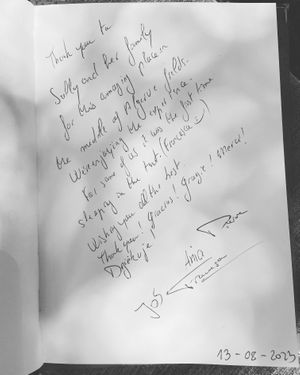 Thank you to
Sully and her family
for this amazing place in
the middle of Algarve fields.
We're enjoying the experience.
For some of us it was the first time
sleeping in the tent. (Francesca :))
Wishing you all the best.
Thank you! Gracias! Grazie! Merci!
Dziękuję!
13-08-2023